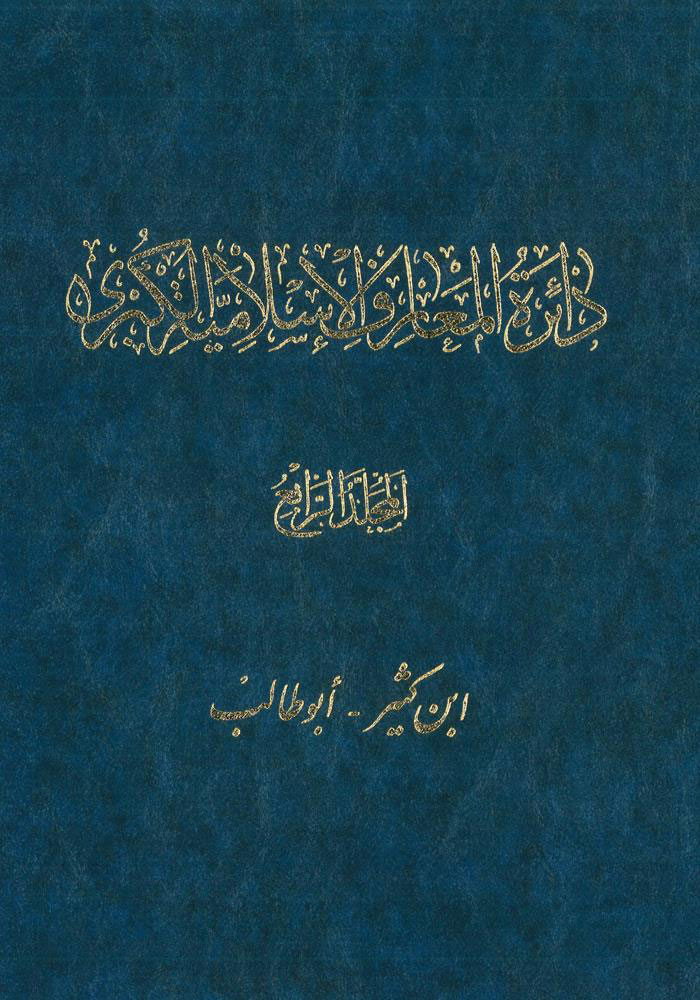 دَائِرَةُ المَعَارِفِ الإِسْلَامِيَّةِ الكُبْرَى
المُجَلَّدُ الرَّابِعُ
ابن كثير - أبوطالب